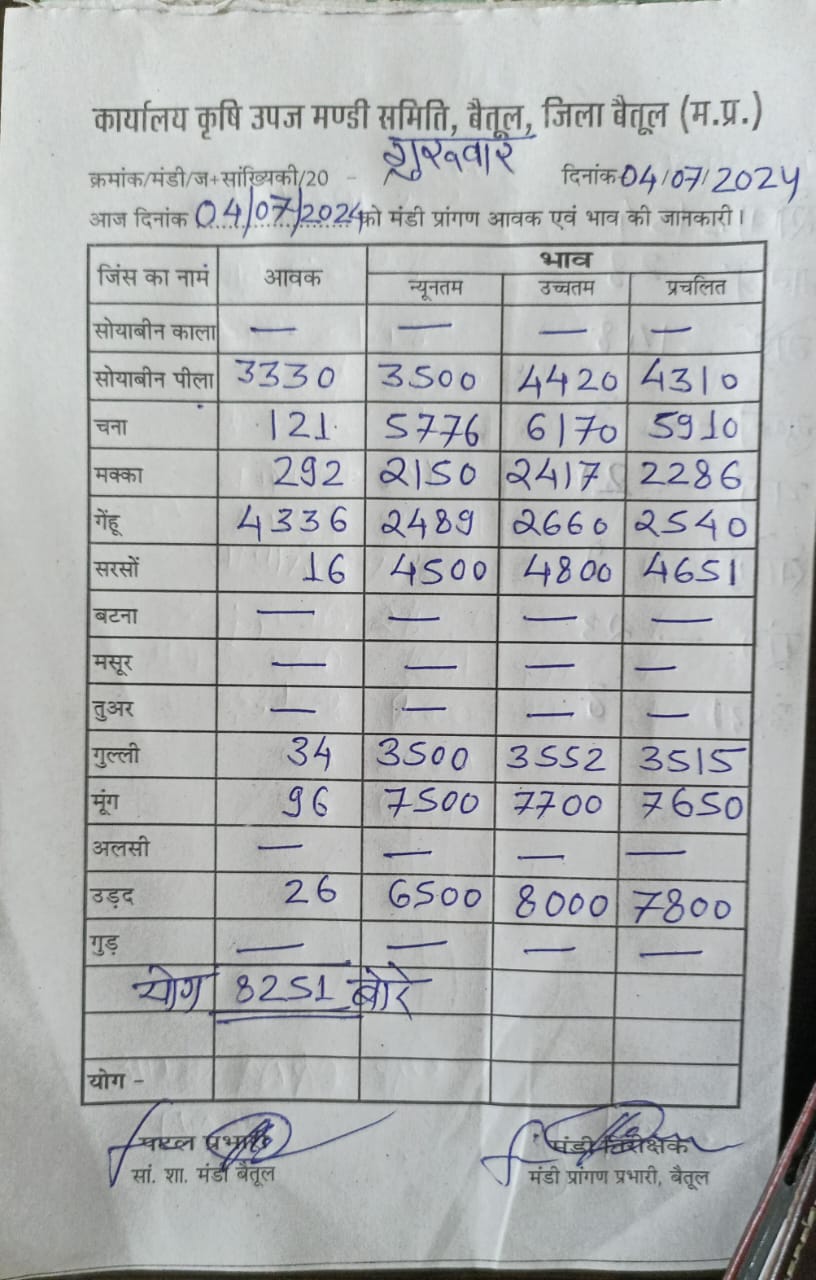 कार्यालय कृषि उपज मण्डी समिति, बैतूल, जिला बैतूल (म.प्र.)
गुरुवार
क्रमांक/मंडी/ज+सांख्यिकी/20 - दिनांक 04/07/2024
आज दिनांक 04/07/2024 को मंडी प्रांगण आवक एवं भाव की जानकारी।
जिंस का नामं आवक भाव
न्यूनतम उच्चतम प्रचलित
सोयाबीन काला — — — —
सोयाबीन पीला 3330 3500 4420 4310
चना 121 5776 6170 5910
मक्का 292 2150 2417 2286
गेंहू 4336 2489 2660 2540
सरसों 16 4500 4800 4651
बटना — — — —
मसूर — — — —
तुअर — — — —
गुल्ली 34 3500 3552 3515
मूंग 96 7500 7700 7650
अलसी — — — —
उड़द 26 6500 8000 7800
गुड़ — — — —
योग 8251 बोरे
योग -
प्रभारी मंडी निरीक्षक
सां. शा. मंडी बैतूल मंडी प्रांगण प्रभारी, बैतूल